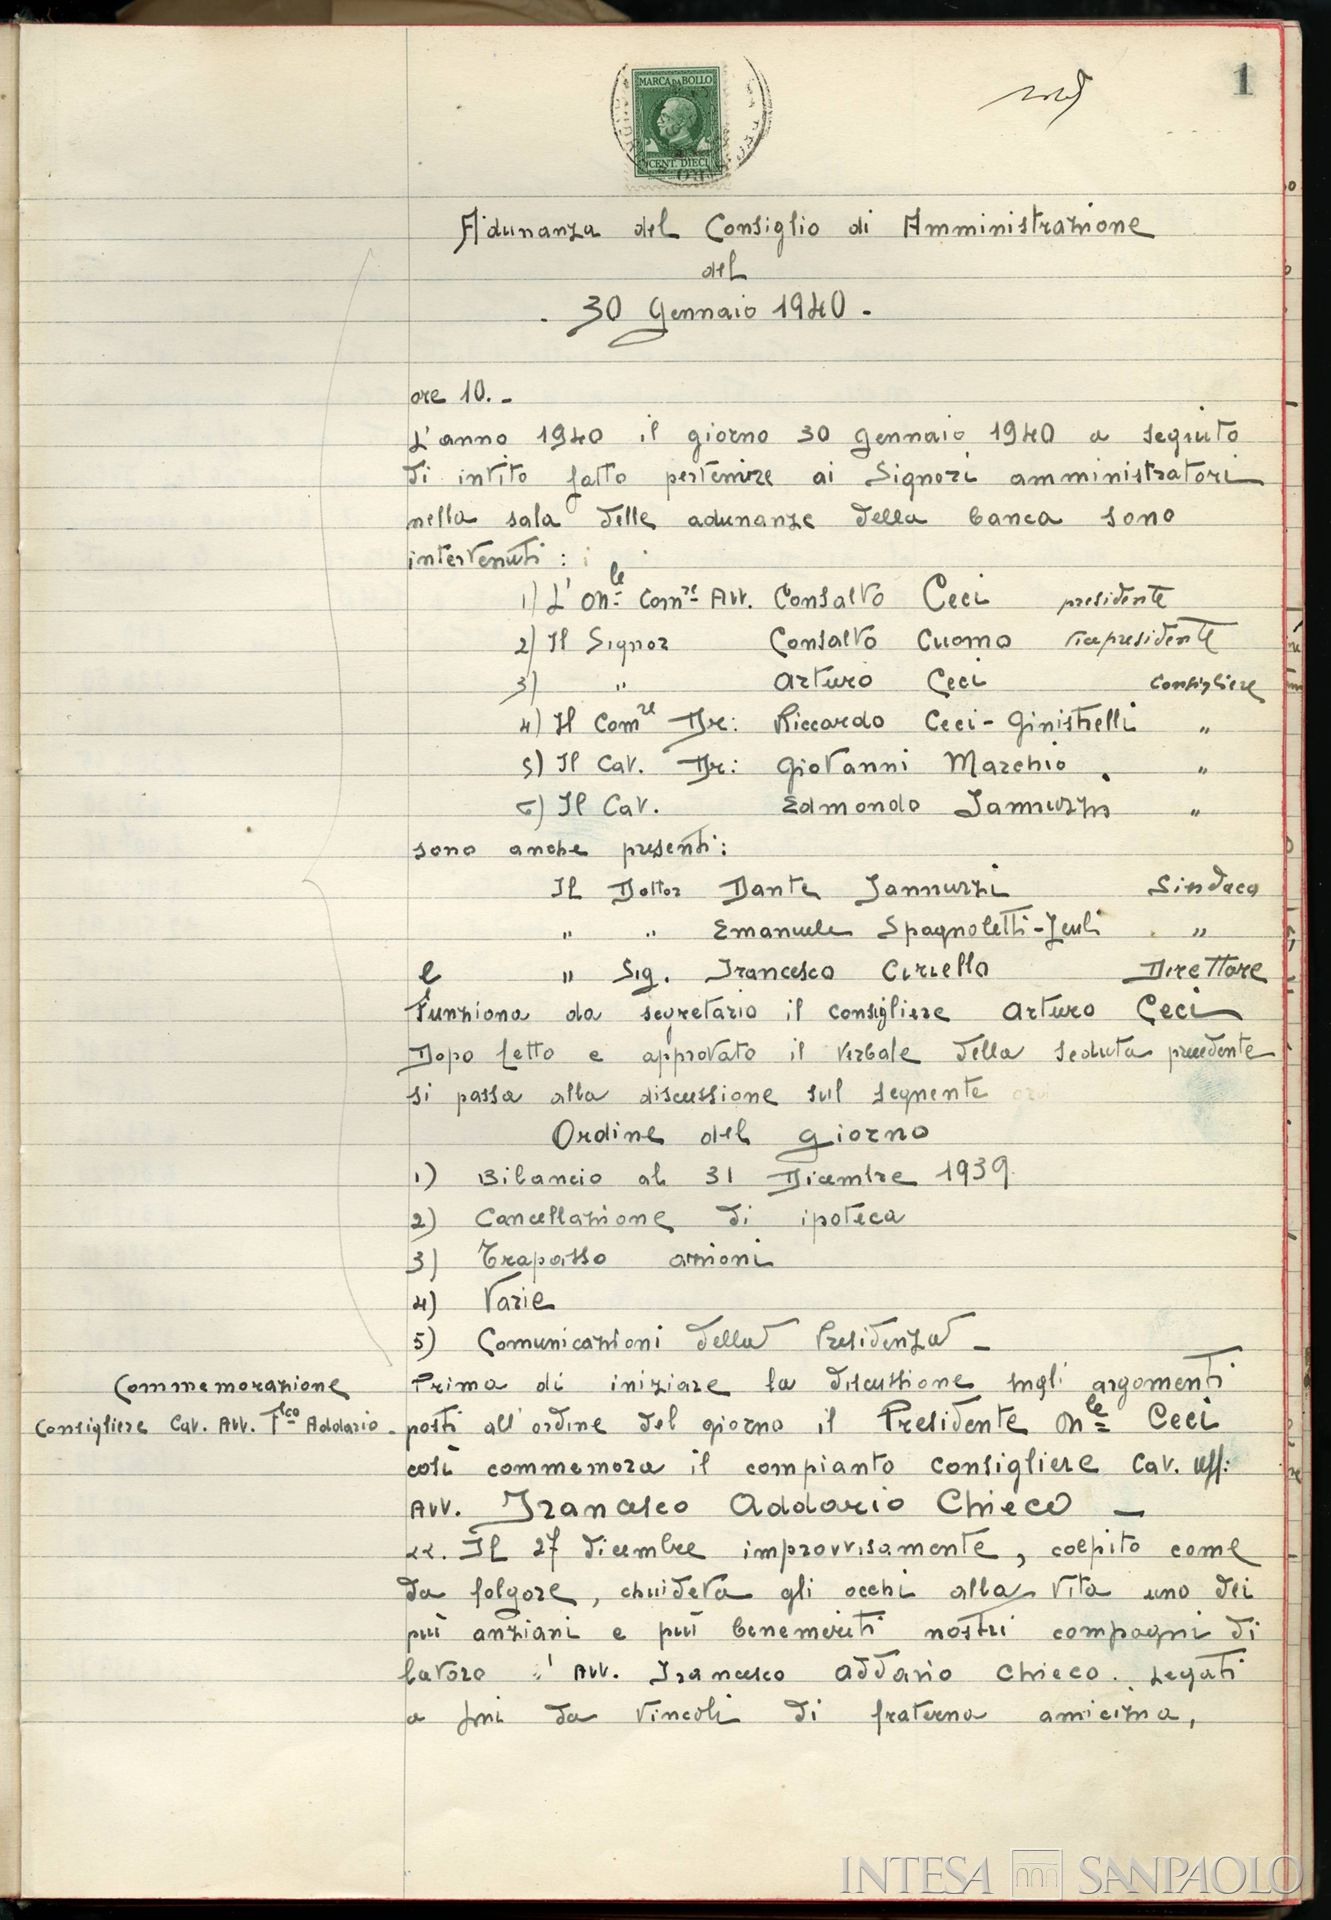 1
MARCA DA BOLLO
CENT. DIECI
Adunanza del Consiglio di Amministrazione
del
. 30 Gennaio 1940 -
ore 10. -
L'anno 1940 il giorno 30 gennaio 1940 a seguito
di invito fatto pervenire ai Signori amministratori
nella sala delle adunanze della banca sono
intervenuti :
1) L'On.le Com.re Avv. Consalvo Ceci presidente
2) Il Signor Consalvo Cuomo vicepresidente
3) " Arturo Ceci Consigliere
4) Il Com.re Dr: Riccardo Ceci-Ginistrelli "
5) Il Cav. Dr: Giovanni Marchio "
6) Il Cav. Edmondo Jannuzzi "
sono anche presenti:
Il Dottor Dante Jannuzzi Sindaco
" " Emanuele Spagnoletti-Zeuli "
e " Sig. Francesco Ciriello Direttore
Funziona da segretario il consigliere Arturo Ceci
Dopo letto e approvato il verbale della seduta precedente
si passa alla discussione sul seguente
Ordine del giorno
1) Bilancio al 31 Dicembre 1939.
2) Cancellazione di ipoteca
3) Trapasso azioni
4) Varie
5) Comunicazioni della Presidenza -
Commemorazione
Consigliere Cav. Avv. F.sco Addario -
Prima di iniziare la discussione sugli argomenti
posti all'ordine del giorno il Presidente On.le Ceci
così commemora il compianto consigliere Cav. Uff:
Avv. Francesco Addario Chieco -
<<. Il 27 dicembre improvvisamente, colpito come
da folgore, chiudeva gli occhi alla vita uno dei
più anziani e più benemeriti nostri compagni di
lavoro l'Avv. Francesco Addario Chieco. Legati
a lui da vincoli di fraterna amicizia,
INTESA SANPAOLO